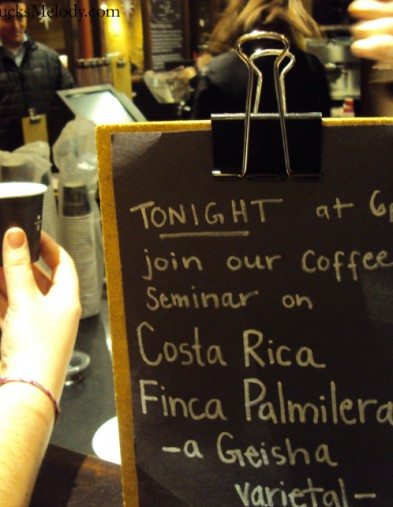 ucksMelody.com
TONIGHT at 6p
join our coffee
Seminar on
Costa Rica
Finca Palmilera
- a Geisha
varietal -